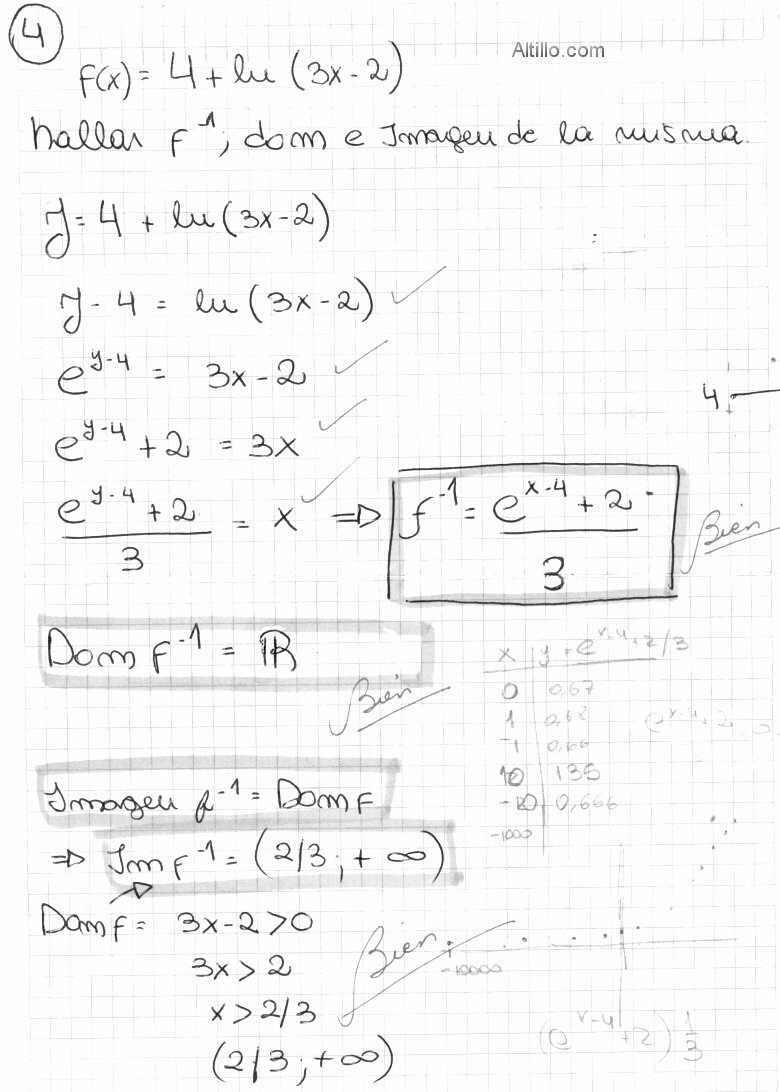 4
Altillo.com
f(x) = 4 + ln (3x-2)
hallar f^-1; dom e Imagen de la misma.
y = 4 + ln (3x-2)
y - 4 = ln (3x-2)
e^y-4 = 3x-2
4
e^y-4 + 2 = 3x
e^y-4 + 2 / 3 = x ⇒ f^-1 = e^x-4 + 2 / 3
Bien
Dom f^-1 = ℝ
Bien
x | y = e^x-4 + 2/3
0 | 0,67
1 | 0,68
-1 | 0,66
10 | 135
-10 | 0,666
-1000
Imagen f^-1 = Dom f
⇒ Im f^-1 = (2/3 ; + ∞)
Dom f = 3x-2 > 0
3x > 2
x > 2/3
(2/3 ; +∞)
Bien
-10000
(e^x-4 + 2) 1/3